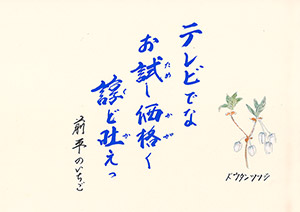 テレビでな
お試し価格く
諄ど吐えっ
前平のいちご
ドウダンツツジ